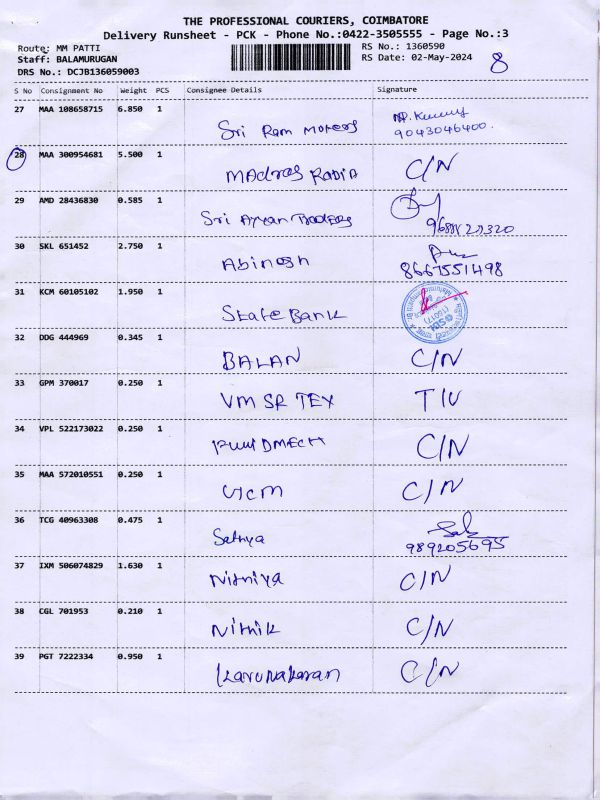 THE PROFESSIONAL COURIERS, COIMBATORE
Delivery Runsheet - PCK - Phone No.:0422-3505555 - Page No.:3
Route: MM PATTI RS No.: 1360590
Staff: BALAMURUGAN RS Date: 02-May-2024 8
DRS No.: DCJB136059003
S No Consignment No Weight PCS Consignee Details Signature
27 MAA 108658715 6.850 1 Sri Ram Motors
9043046400.
28 MAA 300954681 5.500 1 MAdras RADIA C/N
29 AMD 28436830 0.585 1 Sri Ayyan Traders
30 SKL 651452 2.750 1 Abinesh
8667551498
31 KCM 60105102 1.950 1 State Bank
32 DDG 444969 0.345 1 BALAN C/N
33 GPM 370017 0.250 1 VM SR TEX
34 VPL 522173022 0.250 1 C/N
35 MAA 572010551 0.250 1 C/N
36 TCG 40963308 0.475 1 Sathya
989205695
37 IXM 506074829 1.630 1 Nithiya C/N
38 CGL 701953 0.210 1 Nithik C/N
39 PGT 7222334 0.950 1 Karunakaran C/N